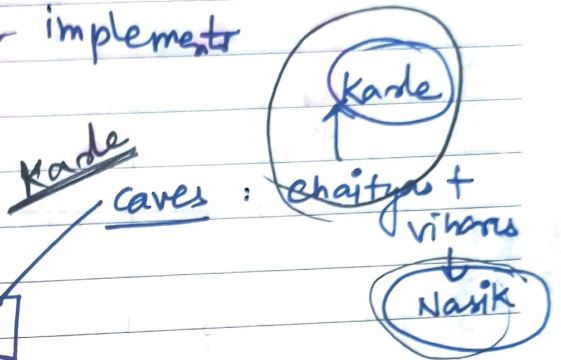 - implements
Karle
Karle
caves : chaityas +
viharas
Nasik